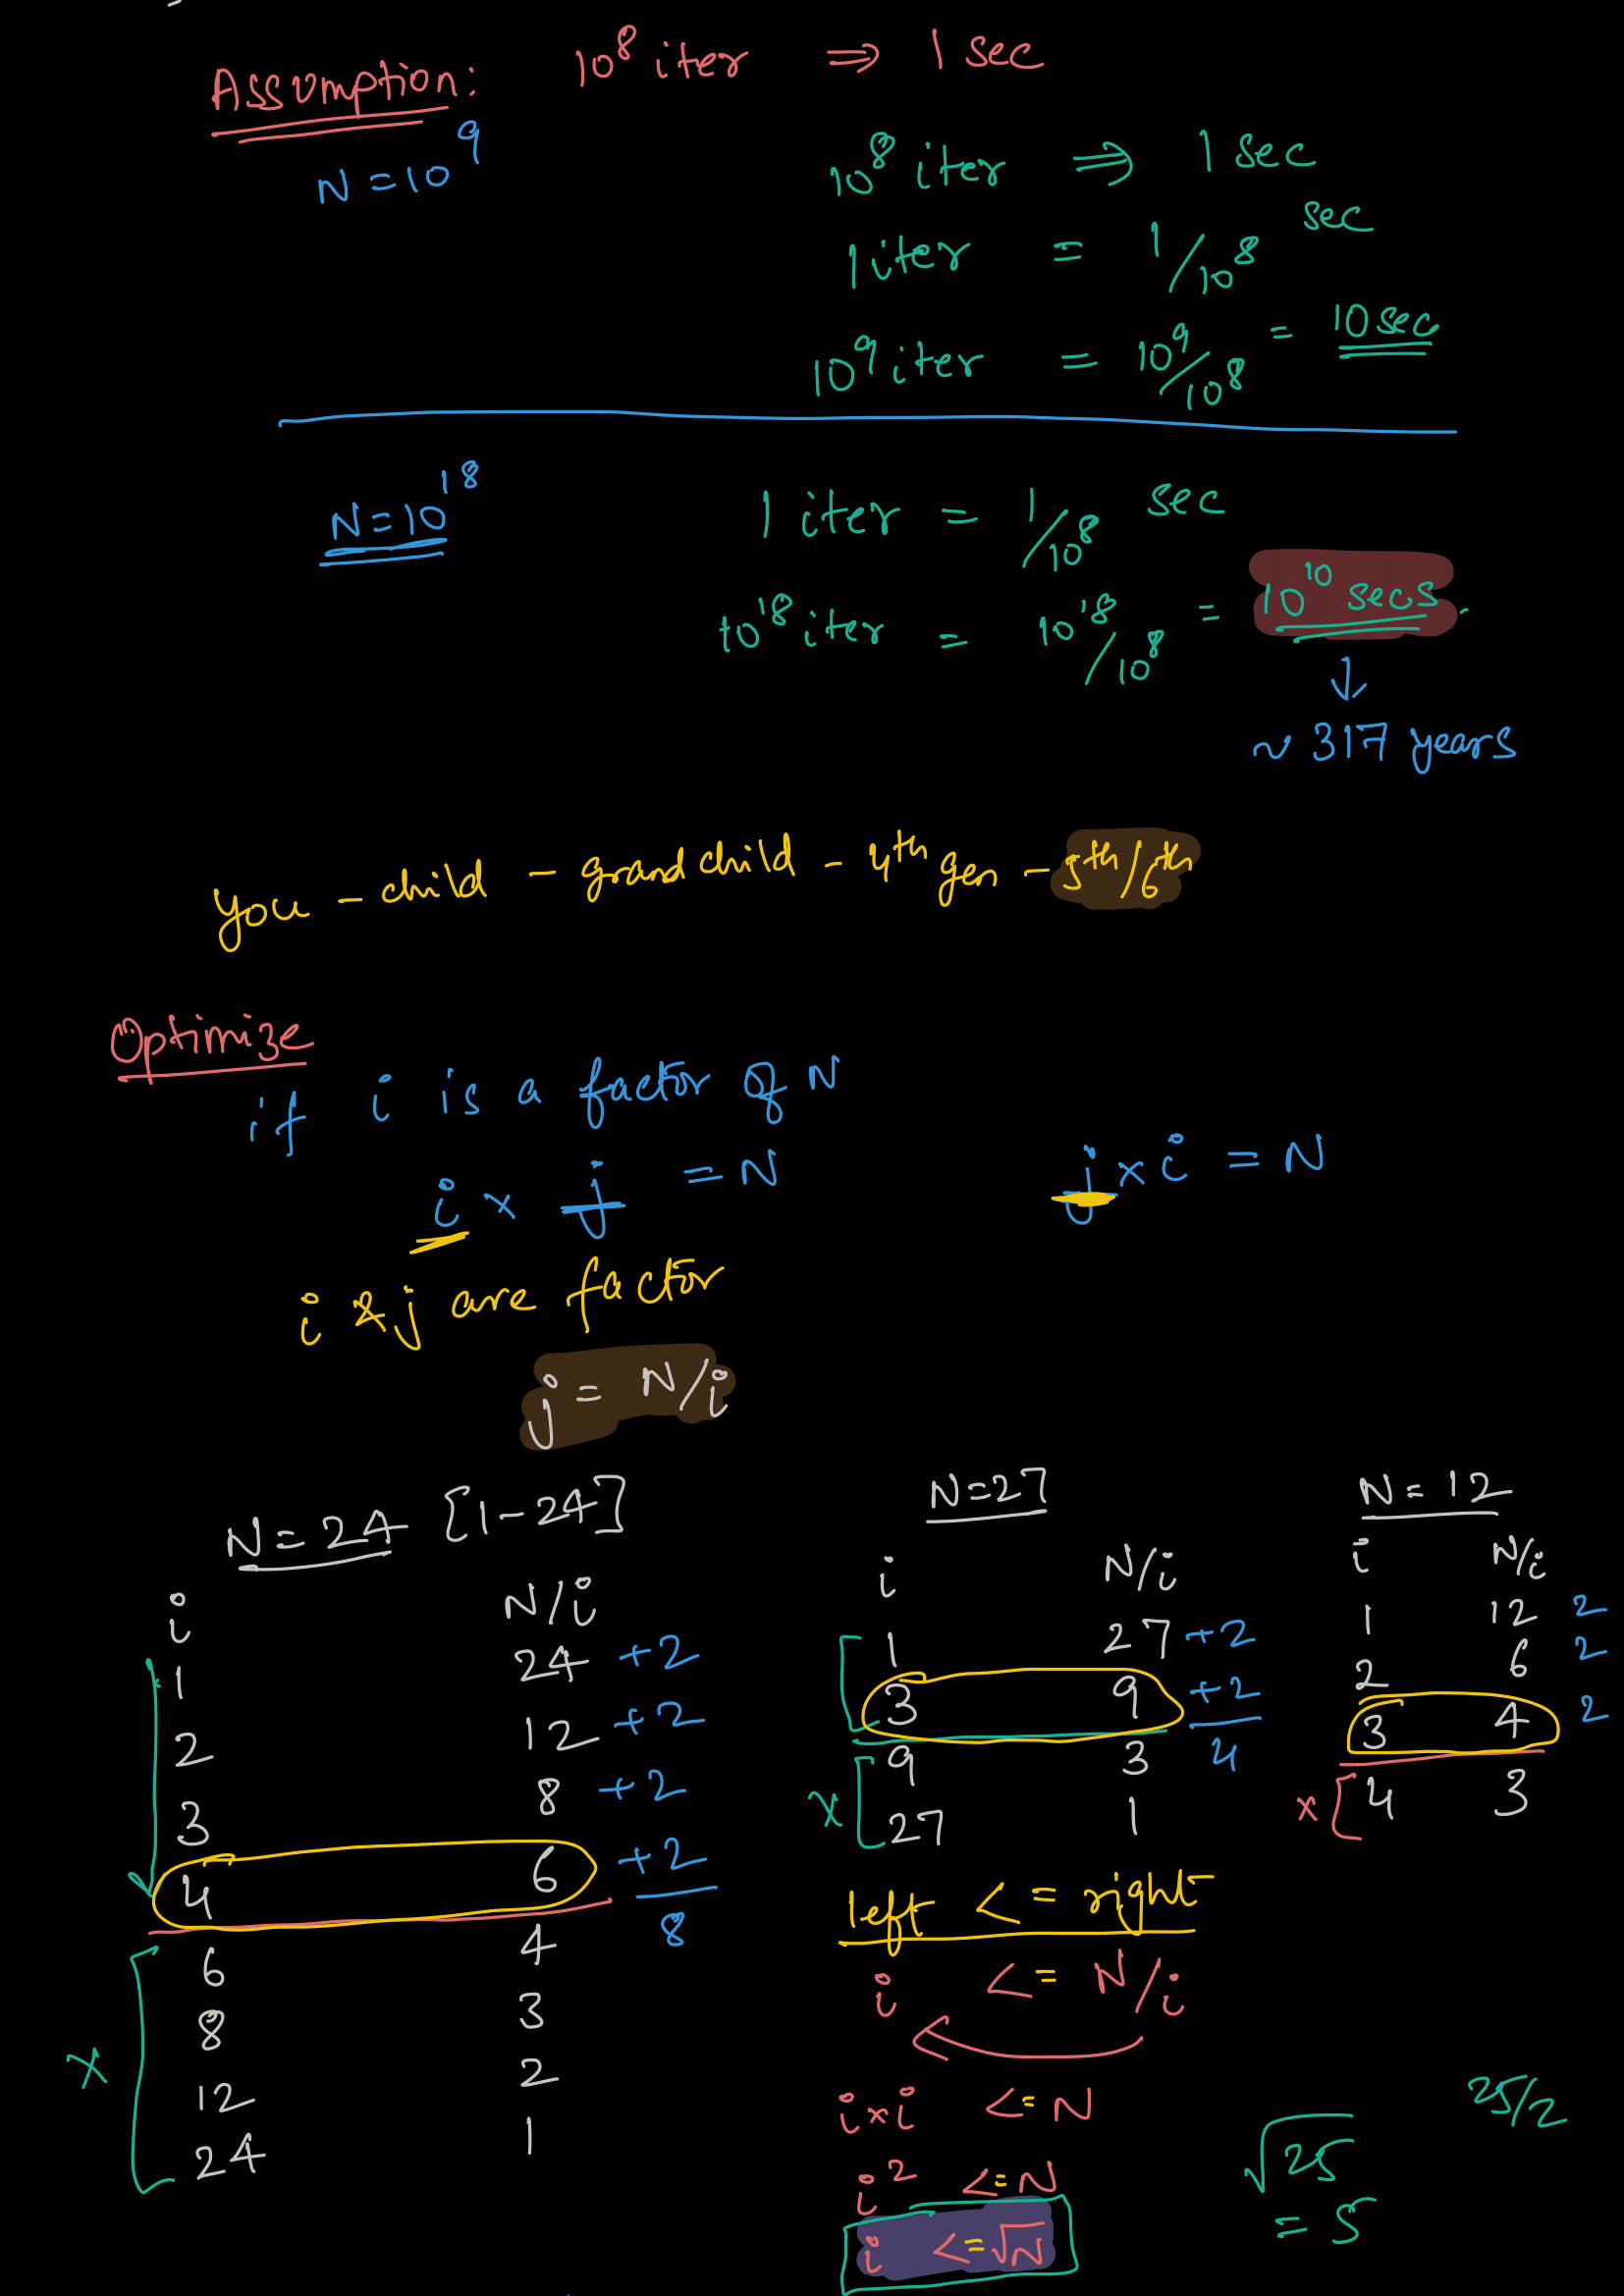 Assumption: 10^8 iter ⇒ 1 sec
N = 10^9
10^8 iter ⇒ 1 sec
1 iter = 1/10^8 sec
10^9 iter = 10^9/10^8 = 10 sec
N = 10^18
1 iter = 1/10^8 sec
10^18 iter = 10^18/10^8 = 10^10 secs.
↓
~ 317 years
you - child - grand child - 4th gen - 5th/6th
Optimize
if i is a factor of N
i × j = N j × i = N
i & j are factor
j = N/i
N = 24 [1-24]
i N/i
1 24 +2
2 12 +2
3 8 +2
4 6 +2
8
6 4
8 3
x 12 2
24 1
N=27
i N/i
1 27 +2
3 9 +2
9 3 4
x 27 1
N = 12
i N/i
1 12 2
2 6 2
3 4 2
x 4 3
left <= right
i <= N/i
i×i <= N
i^2 <= N
i <= √N
25/2
√25
= 5